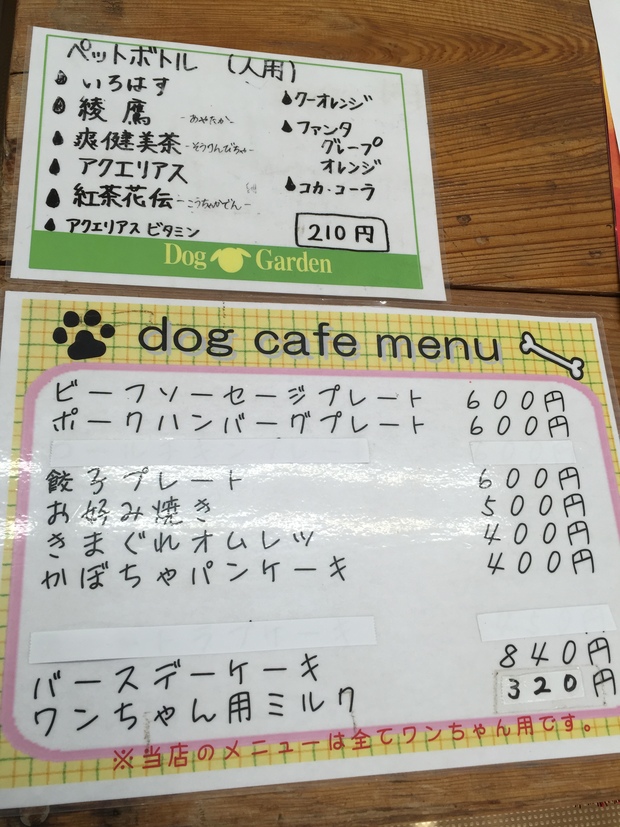 ペットボトル (人用)
いろはす
綾鷹 -あやたか-
爽健美茶 -そうけんびちゃ-
アクエリアス
紅茶花伝 -こうちゃかでん-
アクエリアス ビタミン
クーオレンジ
ファンタ
グレープ
オレンジ
コカ・コーラ
210円
Dog Garden
dog cafe menu
ビーフソーセージプレート 600円
ポークハンバーグプレート 600円
餃子プレート 600円
お好み焼き 500円
きまぐれオムレツ 400円
かぼちゃパンケーキ 400円
バースデーケーキ 840円
ワンちゃん用ミルク 320円
※当店のメニューは全てワンちゃん用です。